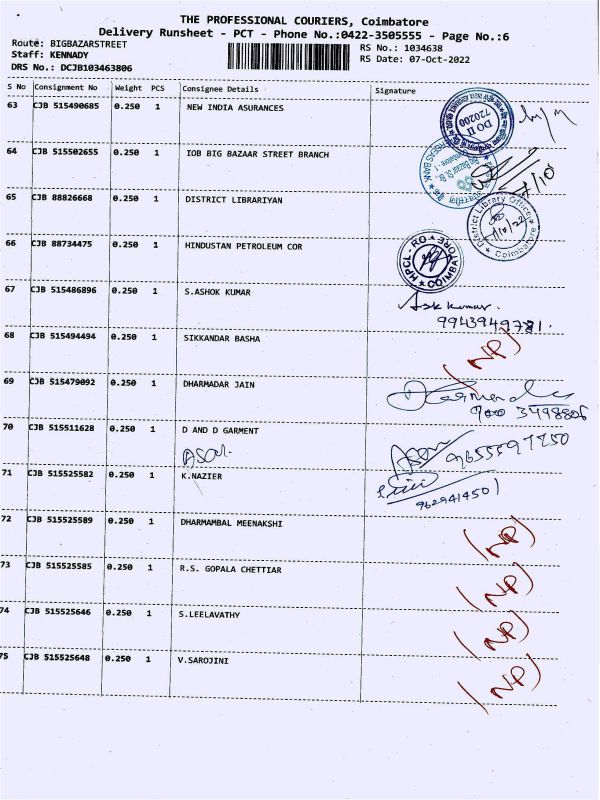 THE PROFESSIONAL COURIERS, Coimbatore
Delivery Runsheet - PCT - Phone No.:0422-3505555 - Page No.:6
Route: BIGBAZARSTREET
Staff: KENNADY
DRS No.: DCJB103463806
RS No.: 1034638
RS Date: 07-Oct-2022
S No Consignment No Weight PCS Consignee Details Signature
63 CJB 515490685 0.250 1 NEW INDIA ASURANCES
DO II
720200
64 CJB 515502655 0.250 1 IOB BIG BAZAAR STREET BRANCH
65 CJB 88826668 0.250 1 DISTRICT LIBRARIYAN
District Library Office
Coimbatore
66 CJB 88734475 0.250 1 HINDUSTAN PETROLEUM COR
HPCL - RO
COIMBATORE
67 CJB 515486896 0.250 1 S.ASHOK KUMAR
9943949781.
68 CJB 515494494 0.250 1 SIKKANDAR BASHA
(NP)
69 CJB 515479092 0.250 1 DHARMADAR JAIN
70 CJB 515511628 0.250 1 D AND D GARMENT
71 CJB 515525582 0.250 1 K.NAZIER
9629414501
72 CJB 515525589 0.250 1 DHARMAMBAL MEENAKSHI
(NP)
73 CJB 515525585 0.250 1 R.S. GOPALA CHETTIAR
(NP)
74 CJB 515525646 0.250 1 S.LEELAVATHY
(NP)
75 CJB 515525648 0.250 1 V.SAROJINI
(NP)